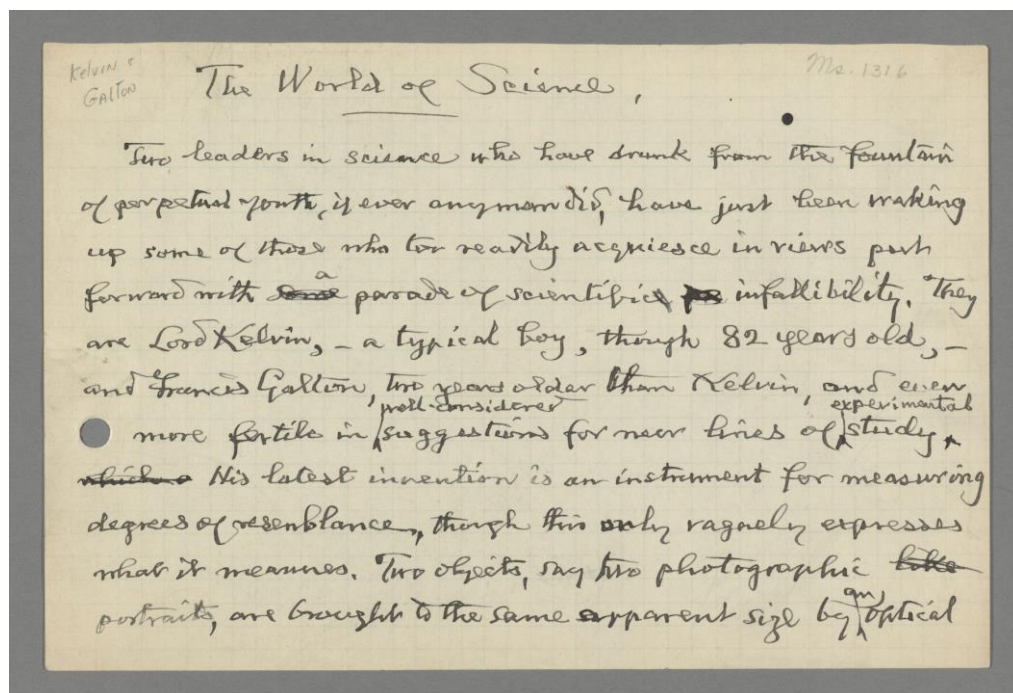 Kelvin &
Galton
The World of Science,
Ms. 1316
Two leaders in science who have drunk from the fountain
of perpetual youth, if ever any man did, have just been waking
up some of those who too readily acquiesce in views put
forward with some a parade of scientific infallibility. They
are Lord Kelvin, – a typical boy, though 82 years old, –
and Francis Galton, two years older than Kelvin, and even
well-considered experimental
more fertile in suggestions for new lines of study.
which His latest invention is an instrument for measuring
degrees of resemblance, though this only vaguely expresses
what it measures. Two objects, say two photographic
an
portraits, are brought to the same apparent size by optical